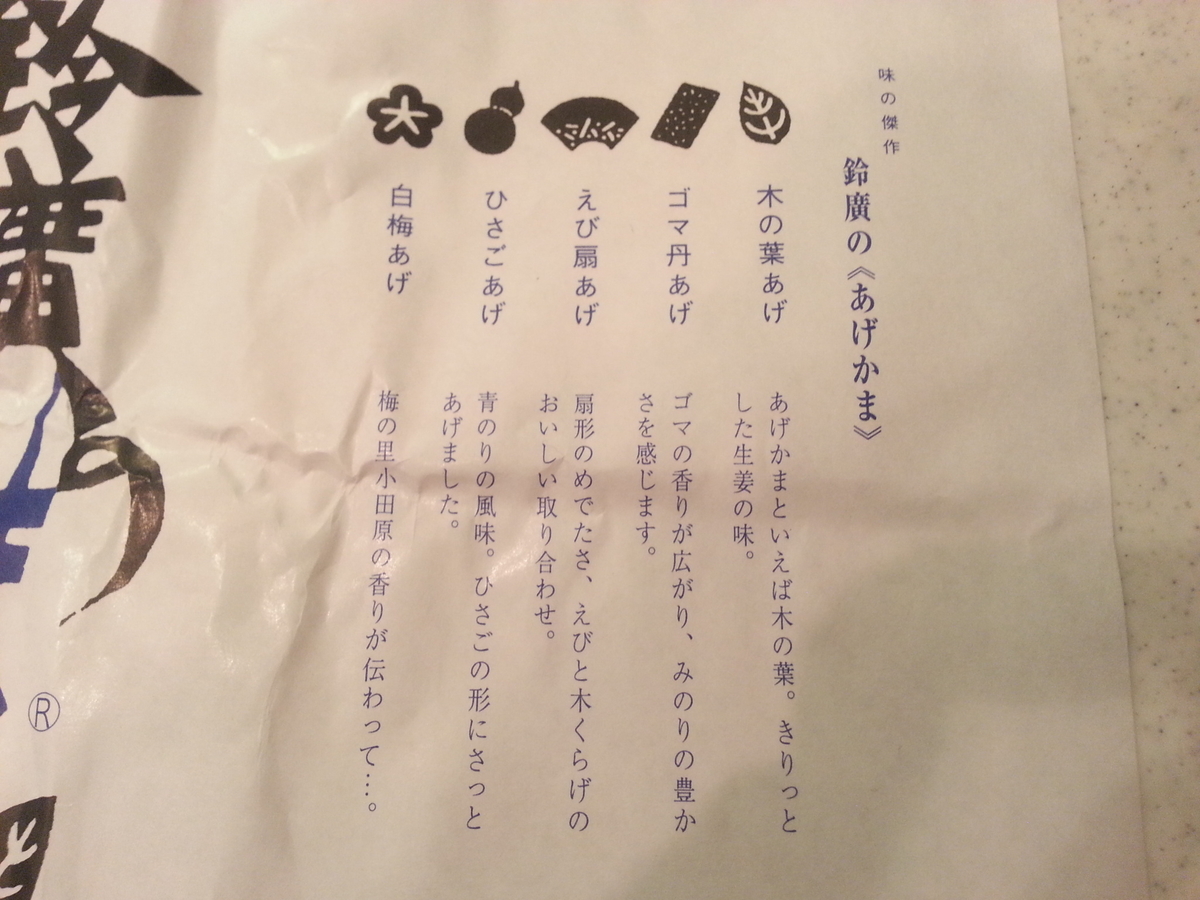 味の傑作
鈴廣の《あげかま》
木の葉あげ
あげかまといえば木の葉。きりっと
した生姜の味。
ゴマ丹あげ
ゴマの香りが広がり、みのりの豊か
さを感じます。
えび扇あげ
扇形のめでたさ、えびと木くらげの
おいしい取り合わせ。
ひさごあげ
青のりの風味。ひさごの形にさっと
あげました。
白梅あげ
梅の里小田原の香りが伝わって…。
鈴廣
®